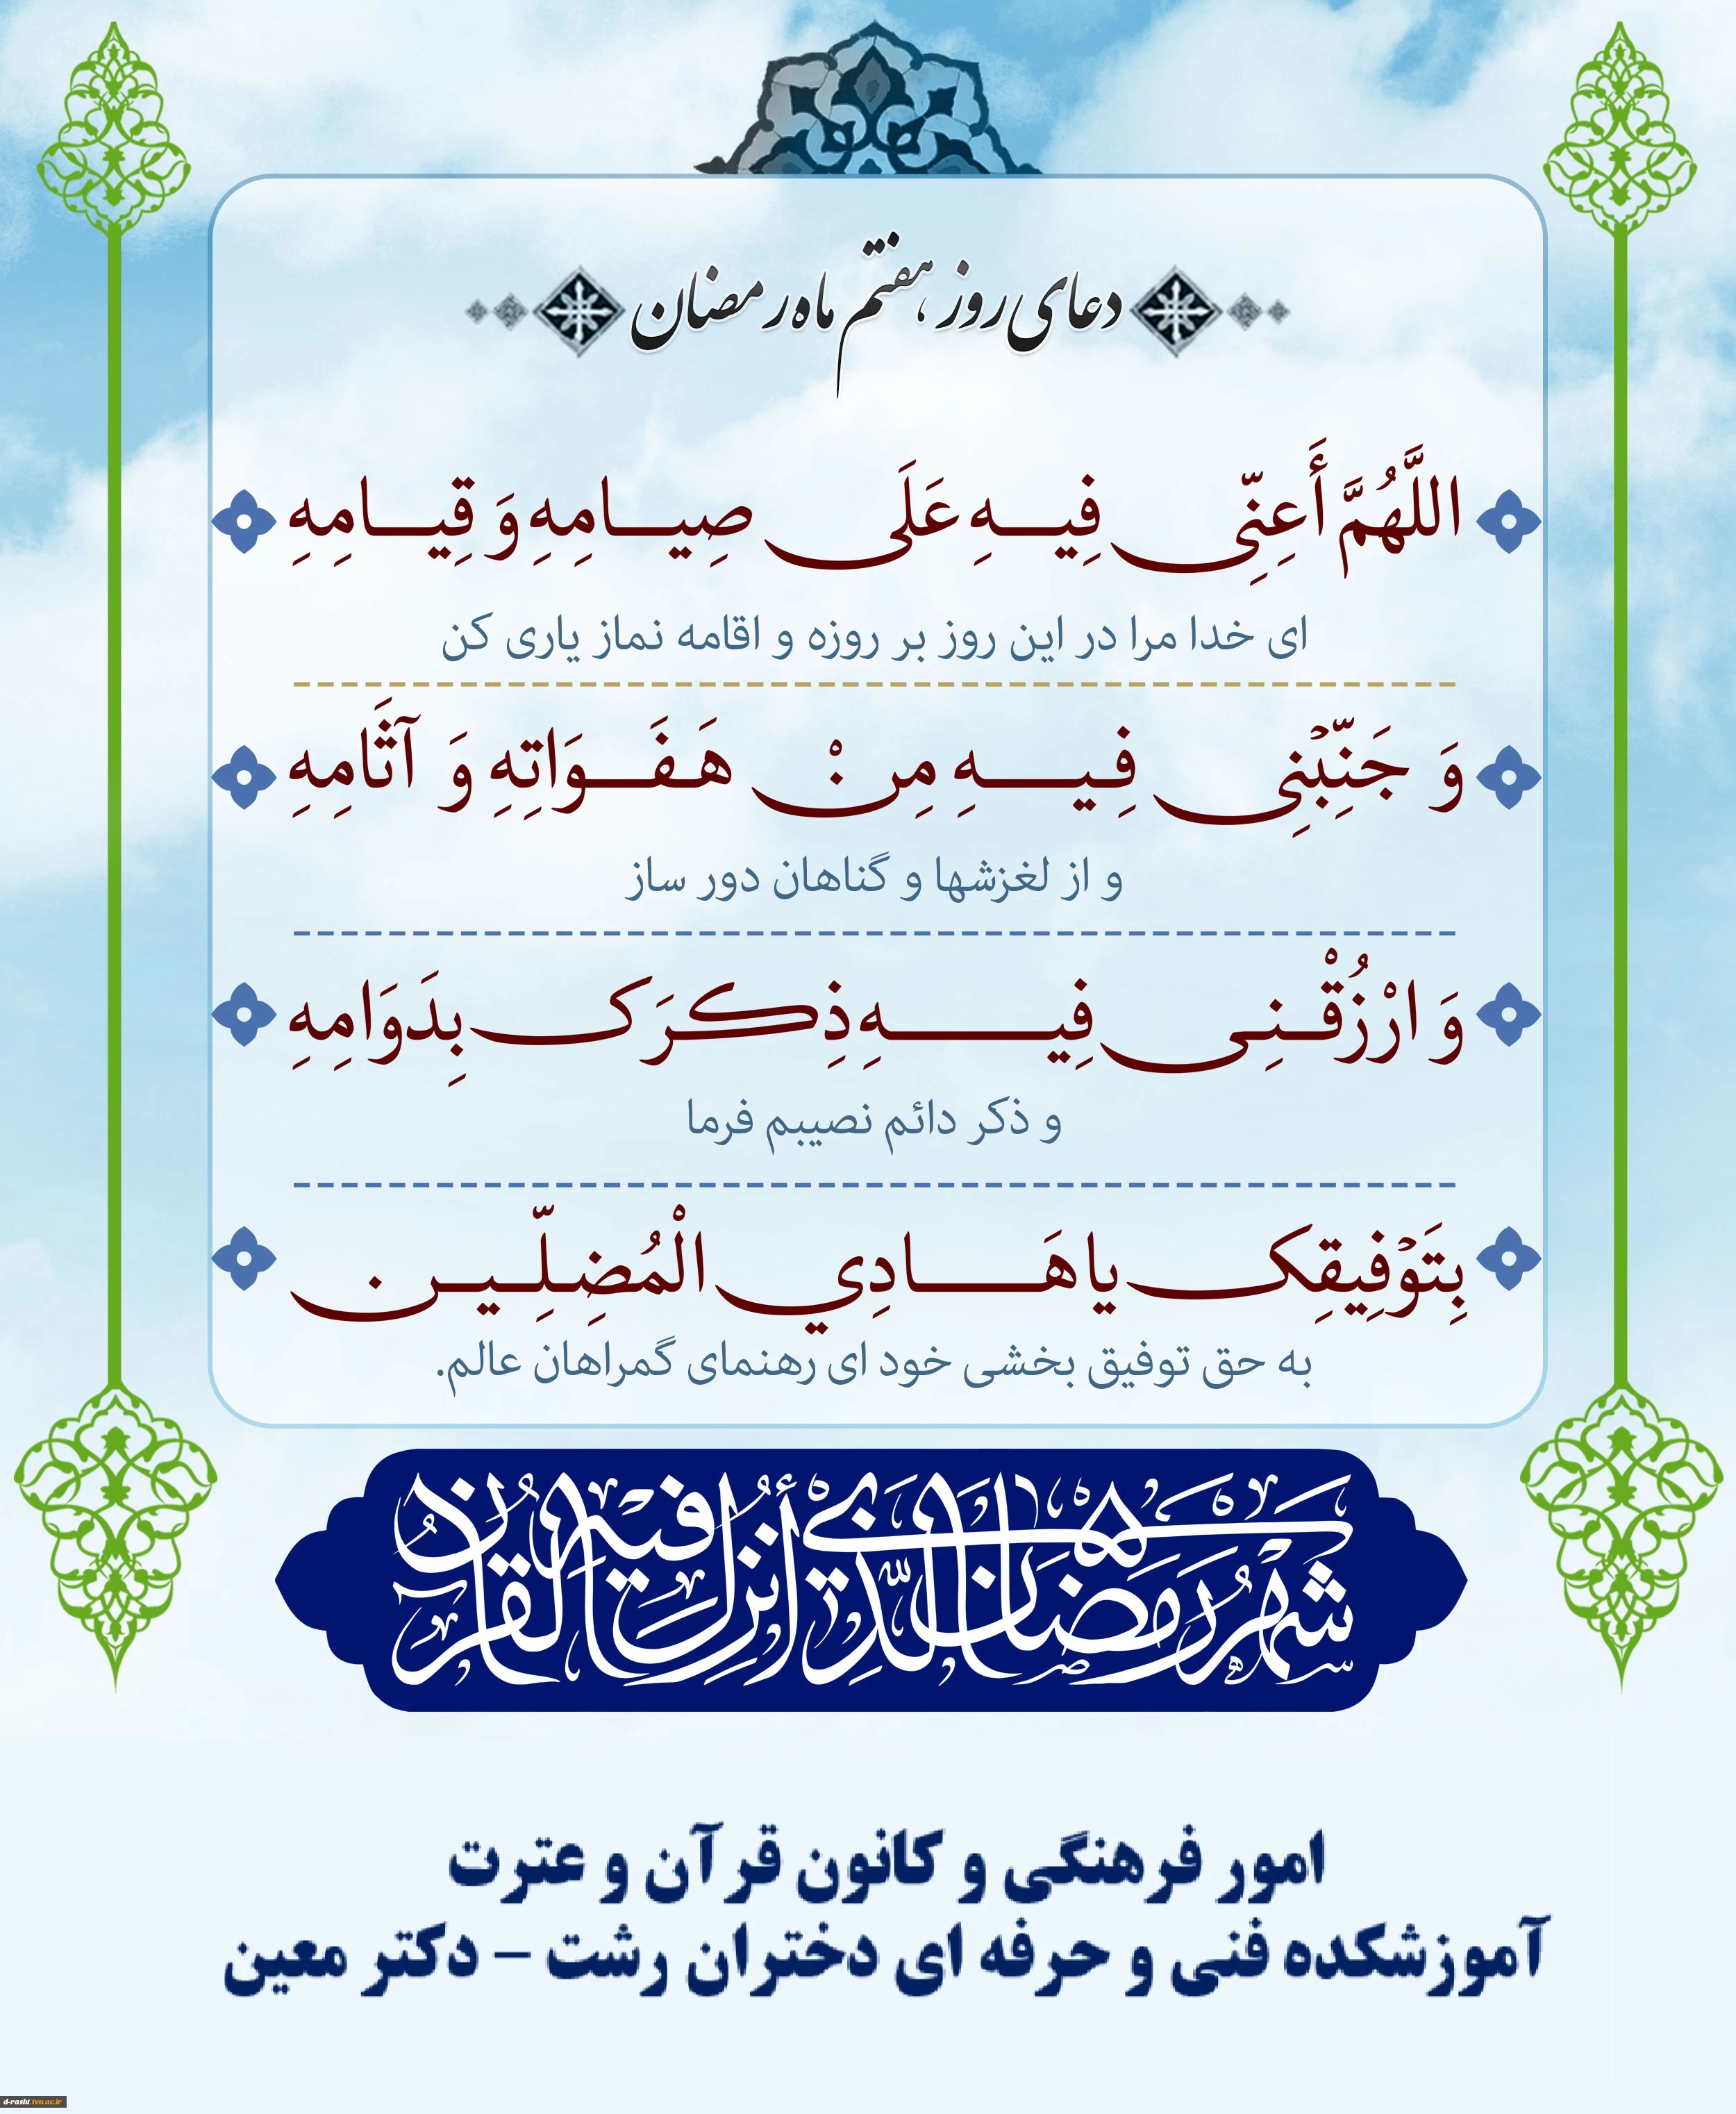 دعای روز هفتم ماه رمضان
اللَّهُمَّ أَعِنِّی فِیهِ عَلَی صِیامِهِ وَ قِیامِهِ
ای خدا مرا در این روز بر روزه و اقامه نماز یاری کن
وَ جَنِّبْنِی فِیهِ مِنْ هَفَوَاتِهِ وَ آثَامِهِ
و از لغزشها و گناهان دور ساز
وَ ارْزُقْنِی فِیهِ ذِکرَک بِدَوَامِهِ
و ذکر دائم نصیبم فرما
بِتَوْفِیقِک یا هَادِي الْمُضِلِّین
به حق توفیق بخشی خود ای رهنمای گمراهان عالم.
شهر رمضان الذی أنزل فیه القرآن
امور فرهنگی و کانون قرآن و عترت
آموزشکده فنی و حرفه ای دختران رشت – دکتر معین
d-rasht.tvu.ac.ir